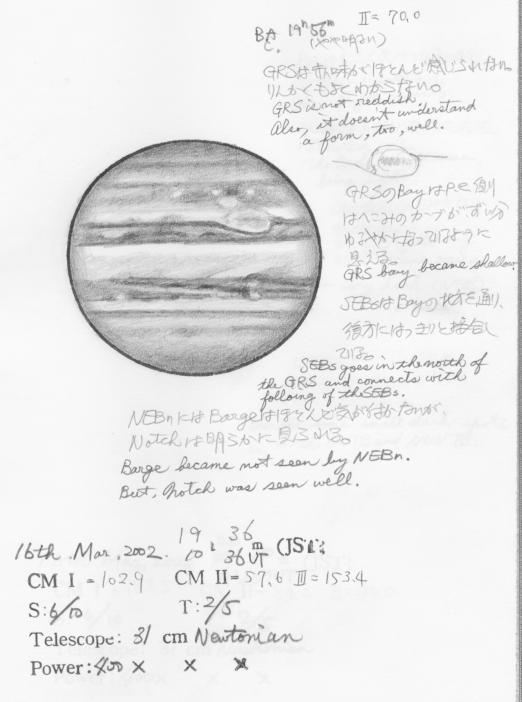 BA 19h 56m II = 70.0
C. (やや明るい)
GRSは赤味がほとんど感じられない。
りんかくもよくわからない。
GRS is not reddish.
Also, it doesn't understand
a form, too, well.
GRSのBayはP.e 側
はへこみのカーブがずい分
ゆるやかになっているように
見える。
GRS bay became shallow.
SEBsはBayの北方を通り、
後方にはっきりと接合し
ている。
SEBs goes in the north of
the GRS and connects with
folloing of the SEBs.
NEBnにはBargeはほとんど気が付かないが、
Notchは明らかに見られる。
Barge became not seen by NEBn.
But, Notch was seen well.
19 36
16th. Mar, 2002. 10h 36m UT (JST)
CM I = 102.9 CM II = 57.6 III = 153.4
S: 6/10 T: 2/5
Telescope: 31 cm Newtonian
Power: 400 × × ×